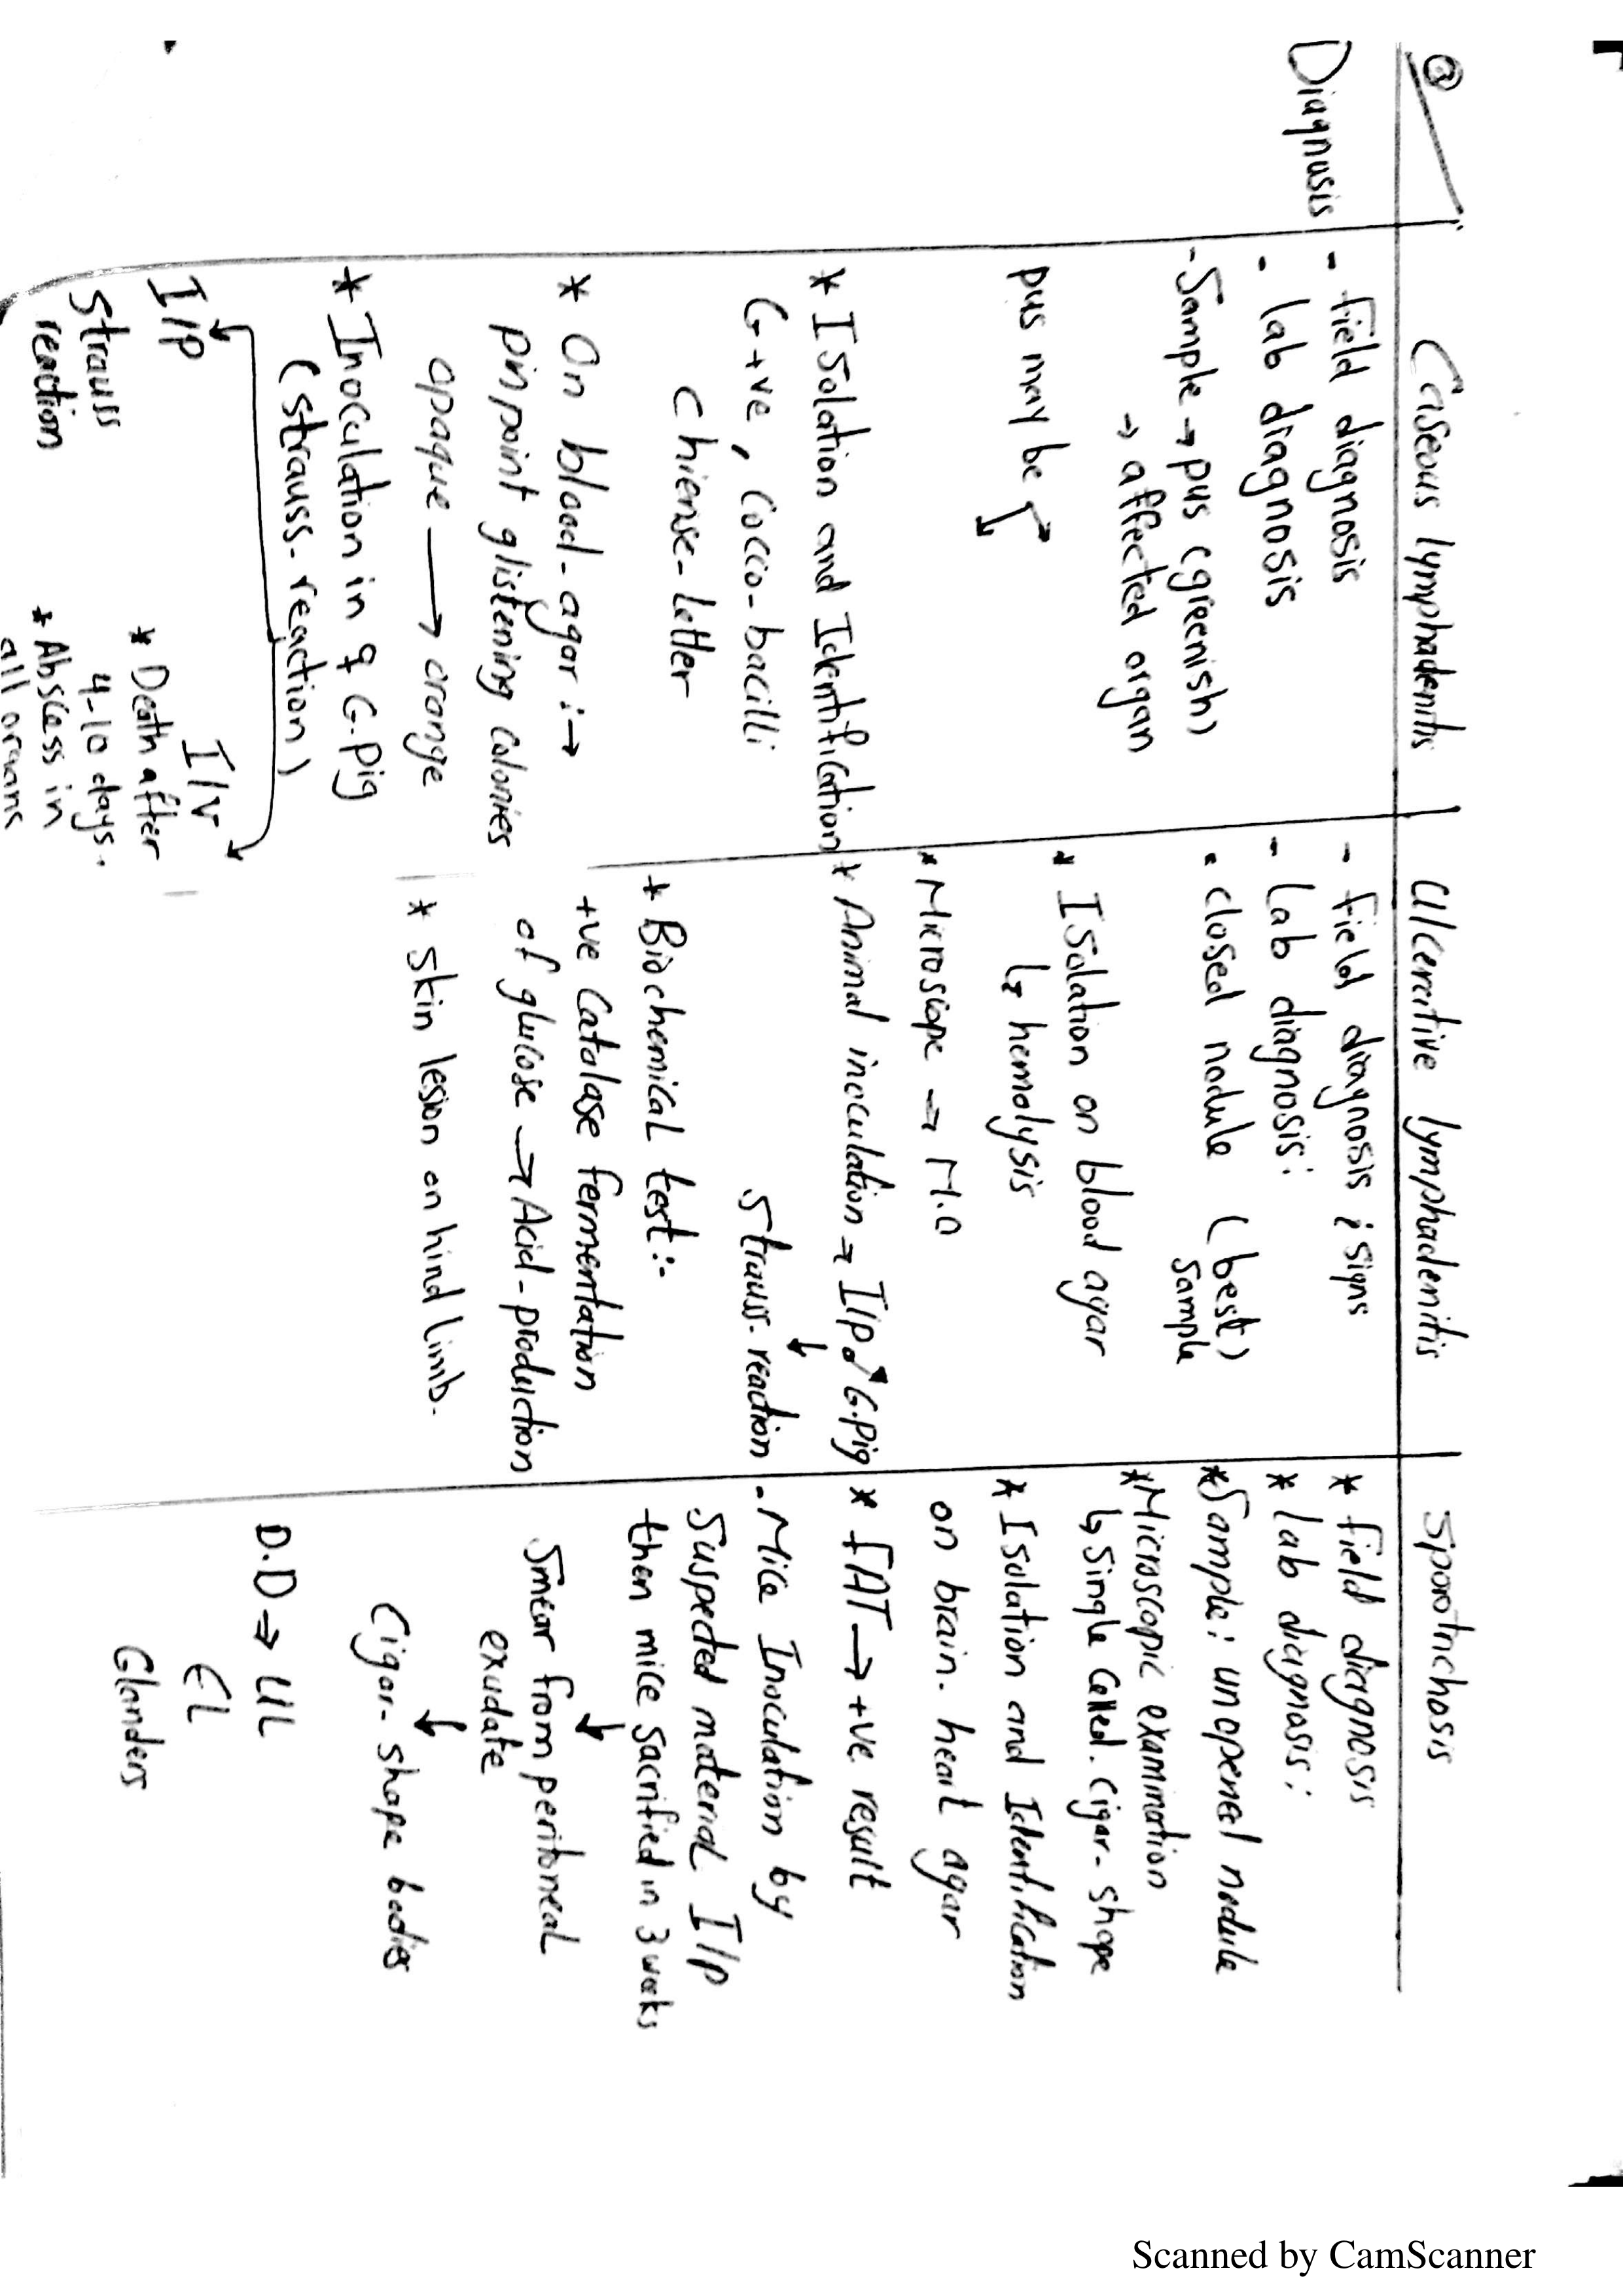 @
Caseous lymphadenitis
Ulcerative lymphadenitis
Sporotrichosis
Diagnosis
- field diagnosis
- lab diagnosis
- Sample → pus (greenish)
→ affected organ
pus may be
* Isolation and Identification
G+ve, Cocco-bacilli
Chiense-letter
* On blood-agar :→
pinpoint glistening colonies
opaque → orange
* Inoculation in ♀ G.pig
(Strauss-reaction)
I/P
Strauss
reaction
I/V
* Death after
4-10 days.
* Abscess in
all organs
- field diagnosis : signs
- Lab diagnosis:
- closed nodule (best)
Sample
* Isolation on blood agar
↳ hemolysis
* Microscope → M.O
* Animal inoculation → I/P ♂ G.pig
↓
Strauss-reaction
* Biochemical test:-
+ve Catalase fermentation
of glucose → Acid-production
* Skin lesion on hind limb.
* field diagnosis
* lab diagnosis:
* Sample: unopened nodule
* Microscopic examination
↳ Single Celled. Cigar-shape
* Isolation and Identification
on brain-heart agar
* FAT → +ve result
- Mice Inoculation by
Suspected material I/P
then mice sacrified in 3 weeks
↓
Smear from peritoneal
exudate
↓
Cigar-shape bodies
D.D ⇒ UL
EL
Glanders
Scanned by CamScanner